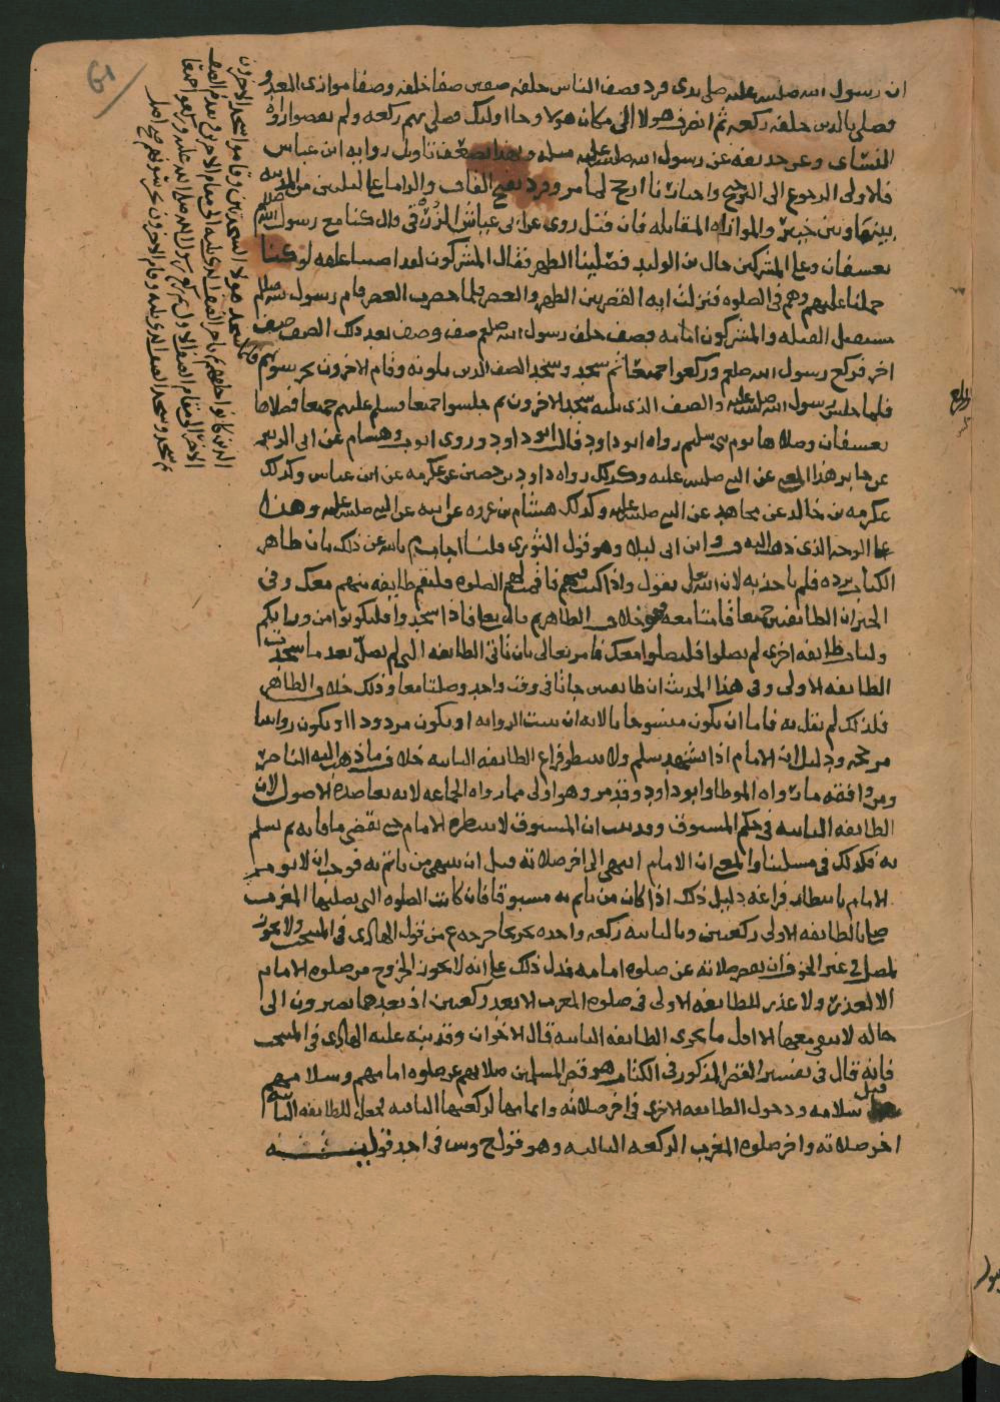 ان رسول الله صلى الله عليه صلى بذى قرد وصف الناس خلفه صفين صفا خلفه وصفا موازى العدو
فصلى بالذين خلفه ركعه ثم انصرف هولا الى مكان هولا وجا اوليك فصلى بهم ركعه ولم يقضوا رواه
النساى وعن حذيفه عن رسول الله صلى الله عليه مثله ويضعف تاويل روايه ابن عباس
فالاولى الرجوع الى الترجيح واخبارنا ارجح لما مر وقرد بفتح القاف والراء ما على ليلتين من المدينه
بينها وبين خيبر والموازاه المقابله فان قيل روى عن ابى عياش الزرقى قال كنا مع رسول الله
بعسفان وعلى المشركين خالد بن الوليد فصلينا الظهر فقال المشركون لقد اصبنا غفله لو كنا
حملنا عليهم وهم فى الصلوه فنزلت ايه القصر بين الظهر والعصر فلما حضرت العصر قام رسول الله صلعم
مستقبل القبله والمشركون امامه فصف خلف رسول الله صلعم صف وصف بعد ذلك الصف صف
اخر فركع رسول الله صلعم وركعوا جميعا ثم سجد وسجد الصف الذين يلونه وقام الاخرون يحرسونهم
فلما جلس رسول الله صلى الله عليه والصف الذى يليه سجد الاخرون ثم جلسوا جميعا وسلم عليهم جميعا فصلاها
بعسفان وصلاها يوم بنى سليم رواه ابو داود قال ابو داود وروى ايوب وهشام عن ابى الزبير
عن جابر هذا المعنى عن النبى صلى الله عليه وكذلك رواه داود بن حصين عن عكرمه عن ابن عباس وكذلك
عكرمه بن خالد عن مجاهد عن النبى صلى الله عليه وكذلك هشام بن عروه عن ابيه عن النبى صلى الله عليه وهذا
على الوجه الذى ذهب اليه وابن ابى ليلا وهو قول الثورى قلنا اجاب عن ذلك بان ظاهر
الكتاب يرده فلم ناخذ به لان الله تعلى يقول واذا كنت فيهم فاقمت لهم الصلوه فلتقم طايفه منهم معك وفى
الخبر ان الطايفتين جميعا قامتا معه فهو خلاف الظاهر ثم قال تعلى فاذا سجدوا فليكونوا من ورايكم
ولتات طايفه اخرى لم يصلوا فليصلوا معك فامر تعالى بان تاتى الطايفه التى لم تصل بعد ما سجدت
الطايفه الاولى وفى هذا الحديث ان طايفتين جاتا فى وقت واحد وصلتا معا وذلك خلاف الظاهر
فلذلك لم نقل به فاما ان يكون منسوخا بالايه ان ثبتت الروايه او يكون مردودا او يكون روايتنا
مرجحه ودليل ان الامام اذا تشهد سلم ولا ينتظر فراغ الطايفه الثانيه خلاف ما ذهب اليه الناصر
ومن وافقه ما رواه الموطا وابو داود وقد مر وهو اولى مما رواه الجماعه لانه يعاضده الاصول لان
الطايفه الثانيه فى حكم المسبوق وقد ثبت ان المسبوق لا ينتظره الامام حتى يقضى ما فاته ثم يسلم
به فكذلك فى مسلتنا والمعنى ان الامام انتهى الى اخر صلاته قبل ان ينتهى من ياتم به فوجب ان لا يومر
الامام بانتظار فراغه دليل ذلك اذا كان من ياتم به مسبوقا فان كانت الصلوه التى يصليها المغرب
صلى بالطايفه الاولى ركعتين وبالثانيه ركعه واحده تخريجا خرجه ع من قول الهادى فى المنتخب ولا يجوز
لمصل فى غير الخوف ان يقصر صلاته عن صلوه امامه فدل ذلك على انه لا يجوز الخروج من صلوه الامام
الا لعذر ولا عذر للطايفه الاولى فى صلوه المغرب الا بعد ركعتين اذ بعدهما يصيرون الى
حاله لا يبقى معها الا اقل ما يجزى الطايفه الثانيه قال الاخوان وقد نبه عليه الهادى فى المنتخب
فانه قال فى تفسير القصر المذكور فى الكتاب هو قصر المسلمين صلاتهم عن صلوه امامهم وسلامهم
قبل سلامه ودخول الطايفه الاخرى فى اخر صلاته واتمامها لركعتها الثانيه فجعل للطايفه الثانيه
اخر صلاته واخر صلوه المغرب الركعه الثالثه وهو قول ح وش فى احد قوليه
فلما سجد هولا السجدتين وقاموا سجد الاخرون
الذين كانوا خلفهم ثم تاخر الصف الذى يليه الى مقام الاخرين وتقدم الصف
الاخر الى مقام الصف الاول ثم ركع رسول الله صلى الله عليه وركعوا جميعا
ثم سجد وسجد الصف الذى يليه وقام الاخرون يحرسونهم صح اصل